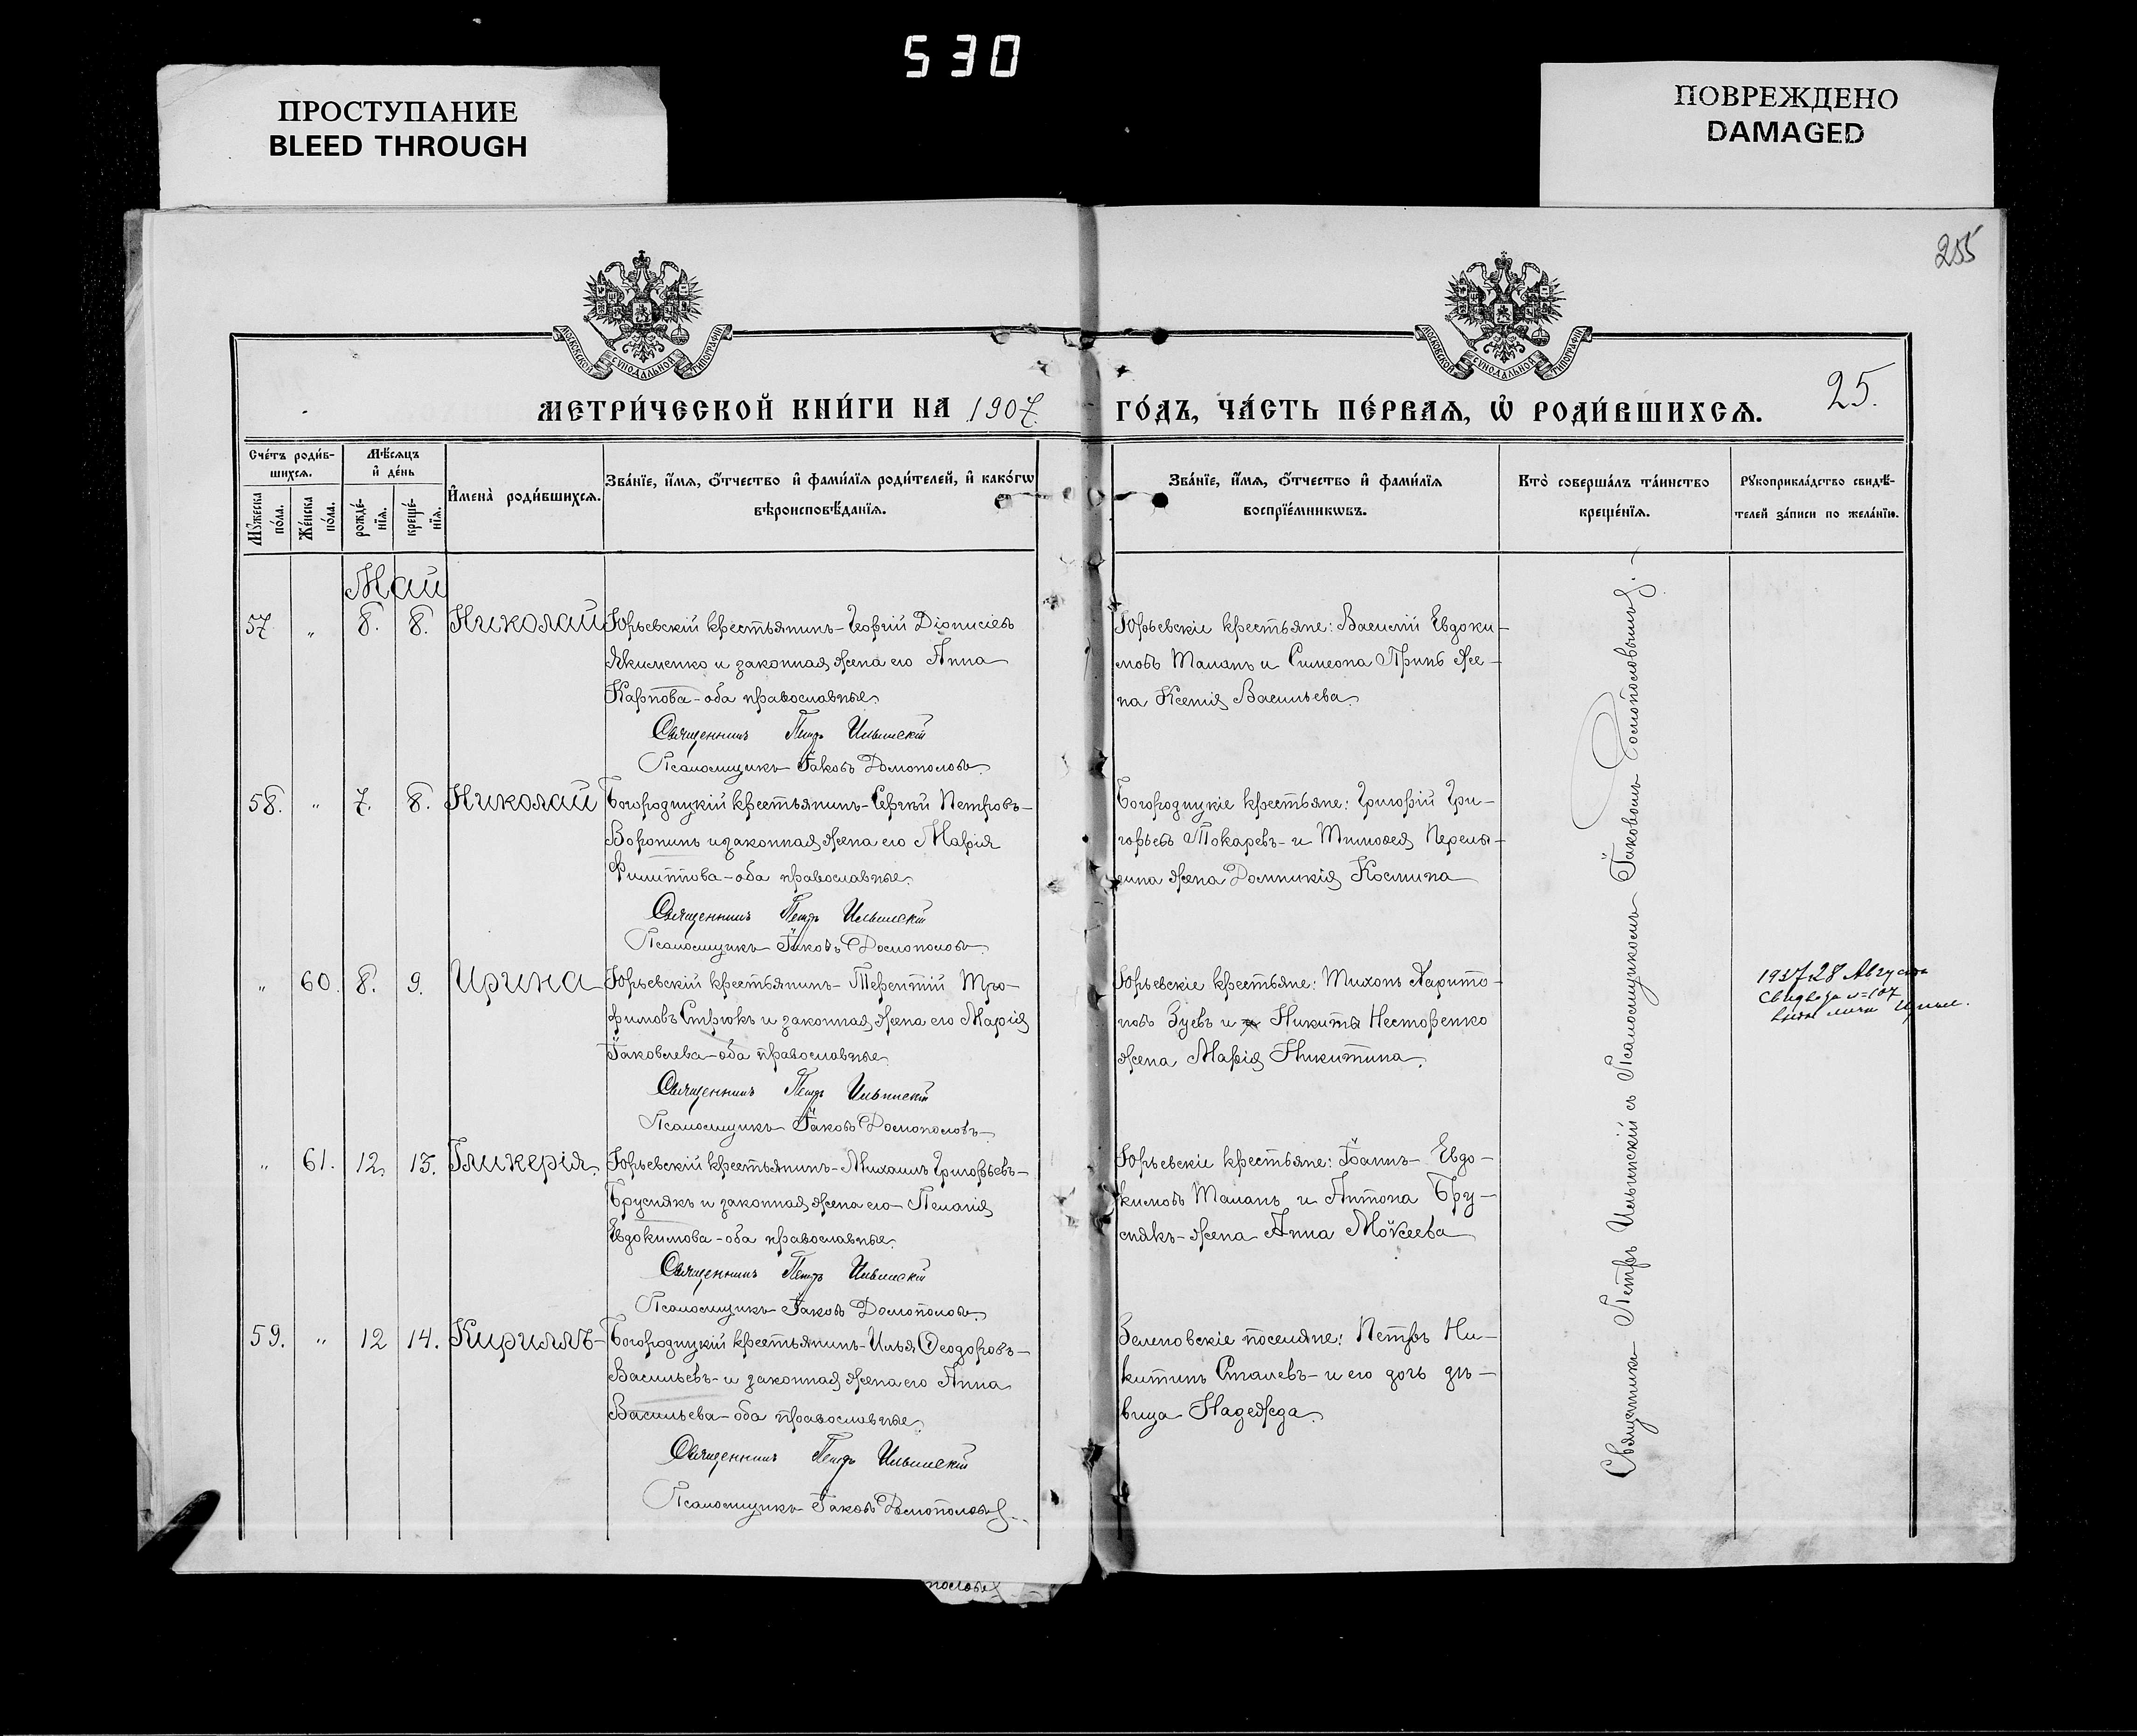 530
ПРОСТУПАНИЕ
BLEED THROUGH
ПОВРЕЖДЕНО
DAMAGED
255
МОСКОВСКОЙ СѴНОДАЛЬНОЙ ТИПОГРАФІИ
МОСКОВСКОЙ СѴНОДАЛЬНОЙ ТИПОГРАФІИ
25.
МЕТРИ́ЧЕСКОЙ КНИ́ГИ НА 1907 ГО́ДЪ, ЧА́СТЬ ПЕ́РВАЯ, Ѽ РОДИ́ВШИХСЯ.
Сче́тъ роди́в-
шихся.
Мѣ́сяцъ
и҆ де́нь
Мꙋ́жеска
по́ла.
Же́нска
по́ла.
рожде́-
нїя.
креще́-
нїя.
И҆мена̀ роди́вшихся.
Зва́нїе, и҆́мя, ѻ҆́тчество и҆ фами́лїя роди́телей, и҆ како́гѡ
вѣроисповѣ́данїя.
Зва́нїе, и҆́мя, ѻ҆́тчество и҆ фами́лїя
воспрїе́мникѡвъ.
Кто̀ соверша́лъ та́инство
креще́нїя.
Рꙋкоприкла́дство свидѣ́-
телей за́писи по жела́нїю.
Май
57 " 8. 8. Николай Юрьевскій крестьянинъ - Георгій Діонисіевъ
Якименко и законная жена его Анна
Карпова - оба православные.
Священникъ Петръ Ильинскій
Псаломщикъ Іаковъ Домополовъ.
Юрьевскіе крестьяне: Василій Евдоки-
мовъ Таланъ и Симеона Принь же-
на Ксенія Васильева.
58. " 7. 8. Николай Богородицкій крестьянинъ - Сергій Петровъ
Воронинъ и законная жена его Марія
Филиппова - оба православные.
Священникъ Петръ Ильинскій
Псаломщикъ Іаковъ Домополовъ
Богородицкіе крестьяне: Григорій Гри-
горьевъ Токаревъ - и Тимоѳея Перелы-
гина жена Домникія Космина
" 60. 8. 9. Ирина Юрьевскій крестьянинъ - Терентій Тро-
фимовъ Стрюкъ и законная жена его Марія
Іаковлева - оба православные
Священникъ Петръ Ильинскій
Псаломщикъ Іаковъ Домополовъ
Юрьевскіе крестьяне: Тихонъ Харито-
новъ Зуевъ и Никиты Несторенко
жена Марія Никитина.
28 Августа
№ 107
" 61. 12. 13. Гликерія Юрьевскій крестьянинъ - Михаилъ Григорьевъ
Бруснякъ и законная жена его - Пелагія
Евдокимова - оба православные.
Священникъ Петръ Ильинскій
Псаломщикъ Іаковъ Домополовъ
Юрьевскіе крестьяне: Іоаннъ - Евдо-
кимовъ Таланъ и Антона Бру-
снякъ - жена Анна Мокеева
59. " 12 14. Кириллъ Богородицкій крестьянинъ - Илья Ѳеодоровъ
Васильевъ - и законная жена его Анна
Васильева - оба православные.
Священникъ Петръ Ильинскій
Псаломщикъ Іаковъ Домополовъ
Зеленовскіе поселяне: Петръ Ни-
китинъ Сталевъ - и его дочь дѣ-
вица Надежда.
Священникъ Петръ Ильинскій съ Псаломщикомъ Іаковомъ Домополовымъ.